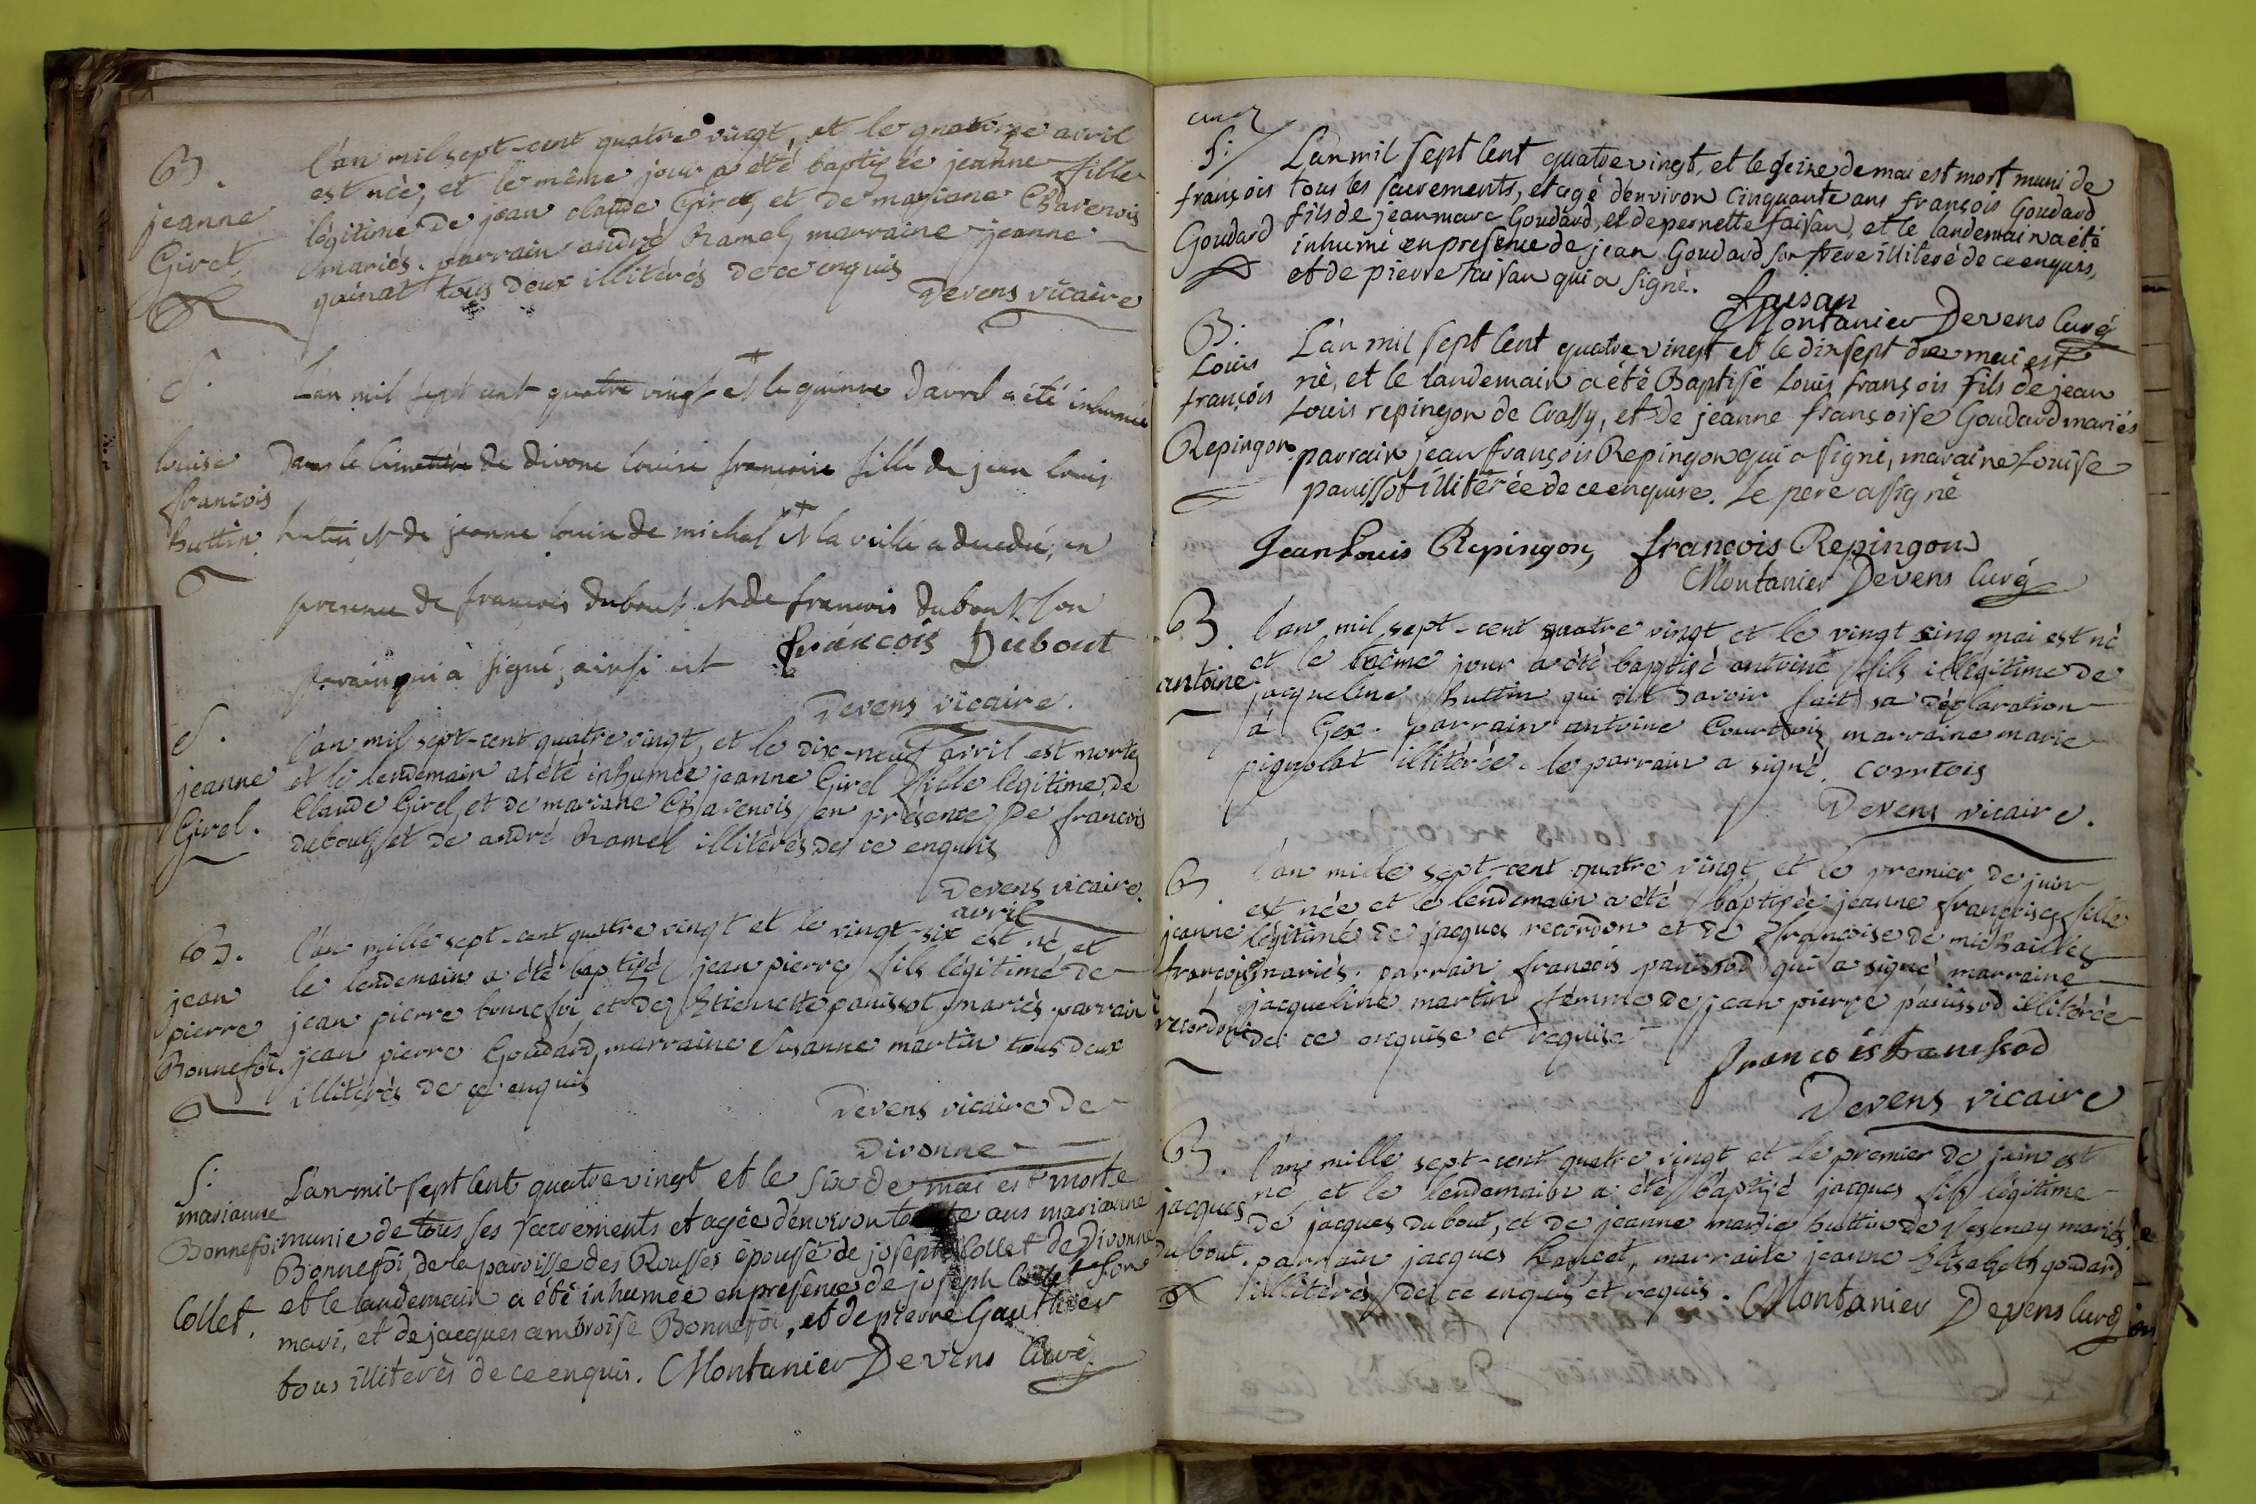 B.
jeanne
Girel
l'an mil sept-cent quatre vingt, et le quatorze avril
est née, et le même jour a été baptizée jeanne fille
légitime de jean claude Girel, et de mariane Chavenois
mariés. parrain andré Ramel, marraine jeanne
goinat tous deux illitérés de ce enquis
Devens vicaire
S.
louise
francois
huttin
L'an mil sept cent quatre vingt et le quinze d'avril a été inhumée
Dans le Cimetière de divone louise francoise fille de jean louis
hutin et de jeanne louise de michal et la veille a decedé, en
presence de francois dubout, et de francois dubout son
parain qui a signé, ainsi est francois Dubout
Devens vicaire.
S.
jeanne
Girel.
l'an mil sept-cent quatre vingt, et le dix-neuf avril est morte
et le lendemain a été inhumée jeanne Girel fille légitime de
Claude Girel, et de mariane Chavenois, en présence de francois
dubout, et de andré Ramel illitérés de ce enquis
Devens vicaire.
B.
jean
pierre
Bonnefoi.
avril
l'an mille sept-cent quatre vingt et le vingt-six est né et
le lendemain a été baptizé jean pierre fils légitime de
jean pierre bonnefoi, et de Etiennette panissot mariés. parrain
jean pierre Goudard, marraine Susanne martin tous deux
illitérés de ce enquis
Devens vicaire de
Divonne
S:
marianne
Bonnefoi
Collet.
L'an mil sept cent quatre vingt et le six de mai est morte
munie de tous ses sacrements et agée denviron ans marianne
Bonnefoi, de la paroisse des Rousses épouse de joseph Collet de Divonne
et le landemain a été inhumée en presence de joseph Collet son
mari, et de jacques ambroise Bonnefoi, et de pierre Gauthier
tous illiterés de ce enquis. Montanier Devens Curé
S:
françois
Goudard
L'an mil sept cent quatre vingt, et le seize de mai est mort muni de
tous les sacrements, et agé denviron Cinquante ans françois Goudard
fils de jean marc Goudard, et de pernette faisan, et le landemain a été
inhumé en presence de jean Goudard son frere illiteré de ce enquis,
et de pierre faisan qui a signé.
faisan
Montanier Devens Curé
B.
Louis
françois
Repingon.
L'an mil sept cent quatre vingt et le dixsept de mai est
né, et le landemain a été Baptisé Louis françois fils de jean
Louis repingon de Crassy, et de jeanne françoise Goudard mariés
parrain jean françois Repingon qui a signé, maraine Louise
panissot illiterée de ce enquise. Le pere a signé
Jean Louis Repingon, françois Repingon
Montanier Devens Curé
B.
antoine
l'an mil sept-cent quatre vingt et le vingt cinq mai est né
et le même jour a été baptizé antoine fils illégitime de
jacqueline huttin qui dit d'avoir fait sa déclaration
à Gex. parrain antoine Courtois, marraine marie
pignolat illitérée. le parrain a signé. Courtois
Devens vicaire.
B.
jeanne
françoise
recordon
l'an mille sept-cent quatre vingt et le premier de juin
est née et le lendemain a été baptizée jeanne françoise fille
légitime de jacques recordon et de françoise de michailles
mariés. parrain francois panissod qui a signé marraine
jacqueline martin femme de jean pierre panissod illitérée
de ce enquise et requise
francois panissod
Devens vicaire
B.
jacques
dubout.
l'an mille sept-cent quatre vingt et le premier de juin est
né et le lendemain a été baptizé jacques fils légitime
de jacques dubout, et de jeanne marie huttin de Vesenay mariés.
parrain jacques, marraine jeanne Elisabeth goudard
illitérés de ce enquis et requis. Montanier Devens Curé